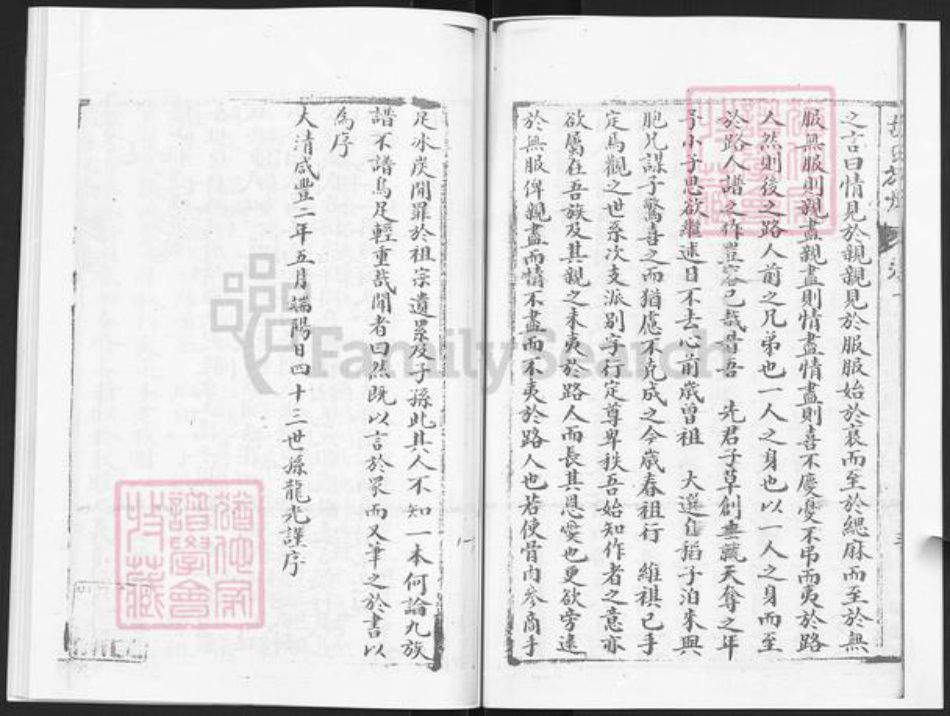 之言曰情見於親親見於服服始於衰而至於緦麻而至於無
服無服則親盡親盡則情盡情盡則喜不慶憂不吊而夷於路
人然則後之路人前之兄弟也一人之身也以一人之身而至
於路人譜之作豈容已哉昔吾 先君子草創無藏天奪之年
予小子思欲繼述日不去心前歲曾祖 大選自稻子泊來與
胞兄謀予驚喜之而猶慮不克成之今歲春祖行 維祺已手
定焉觀之世系次支派別字行定尊卑秩吾始知作者之意亦
欲屬在吾族及其親之未夷於路人而長其恩愛也更欲旁遠
於無服俾親盡而情不盡而不夷於路人也若使骨肉參商手
足冰炭開罪於祖宗遺累及子孫此其人不知一本何論九族
譜不譜烏足輕重哉聞者曰然既以言於眾而又筆之於書以
為序
大清咸豐二年五月端陽日四十三世孫龍光謹序
FamilySearch